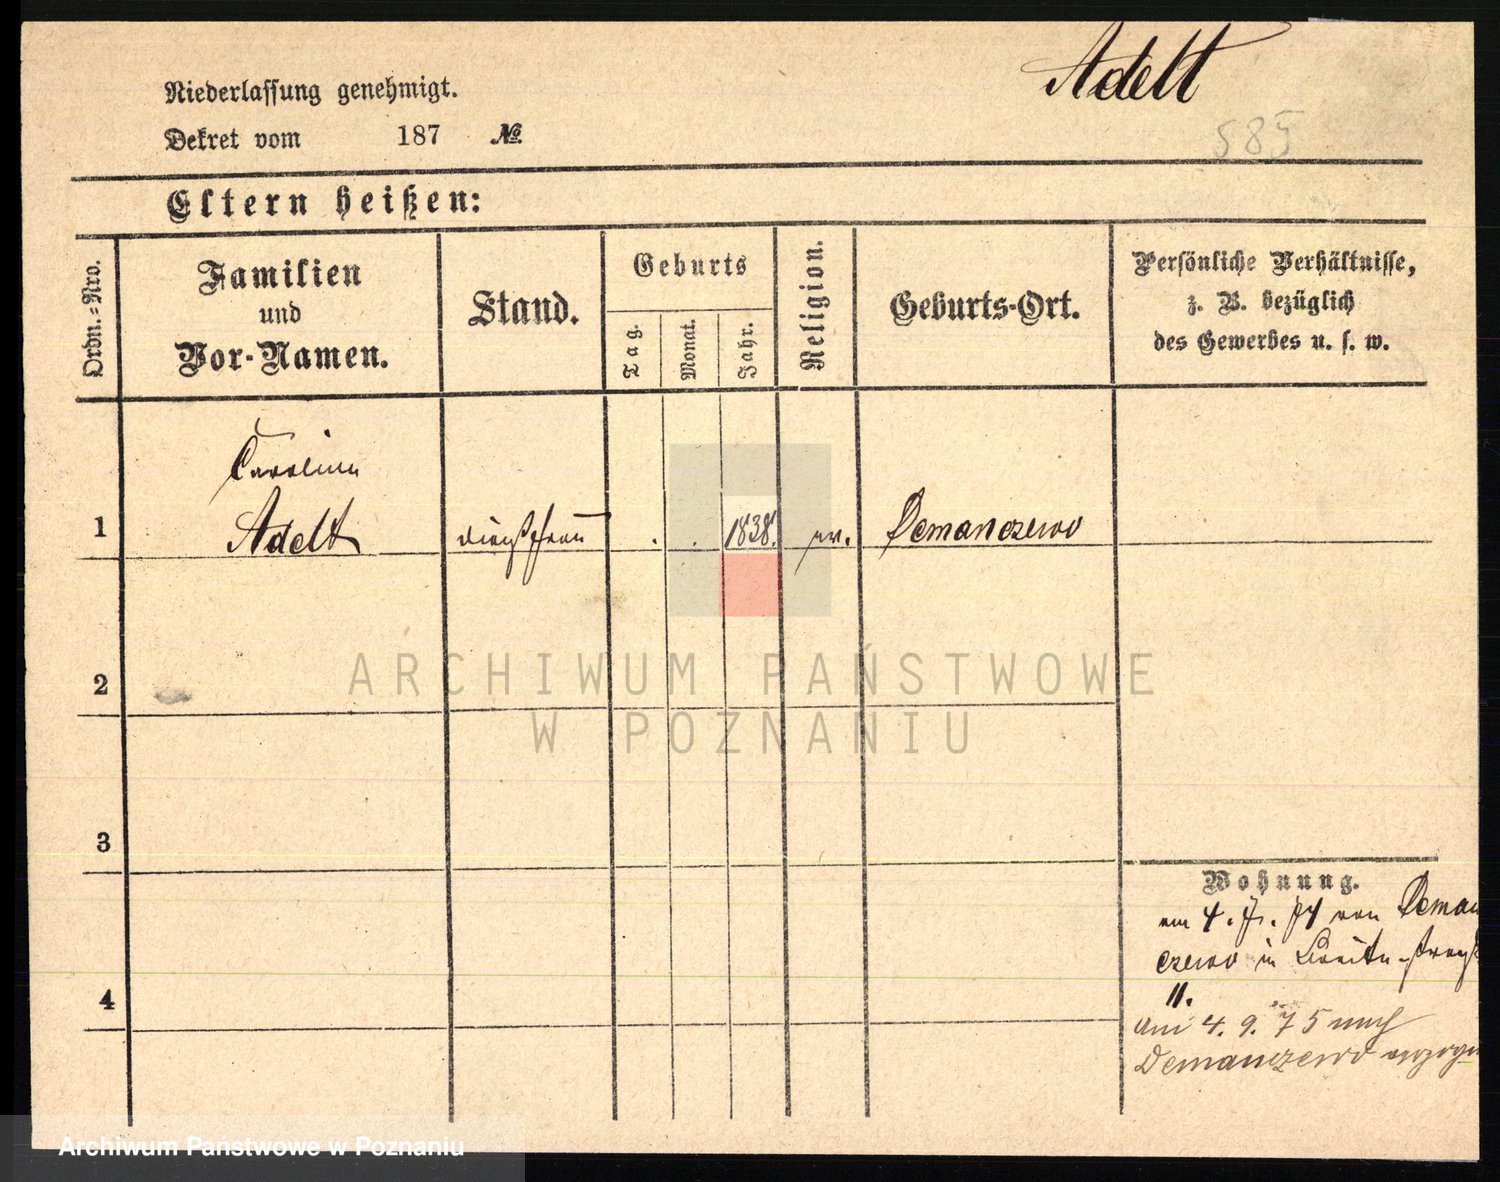 Adelt
585
Niederlassung genehmigt.
Dekret vom 187 №
Eltern heißen:
Ordn.=Nro.
Familien
und
Vor-Namen.
Stand.
Geburts
Tag.
Monat.
Jahr.
Religion.
Geburts-Ort.
Persönliche Verhältnisse,
z. B. bezüglich
des Gewerbes u. s. w.
Carolina
1 Adelt Dienstfrau . . 1838. ev. Demanczewo
2
3
4
Wohnung.
am 4. 7. 74 von Deman
czewo in Breite-straße
11.
Am 4. 9. 75 nach
Demanczewo verzogen
ARCHIWUM PAŃSTWOWE
W POZNANIU
Archiwum Państwowe w Poznaniu